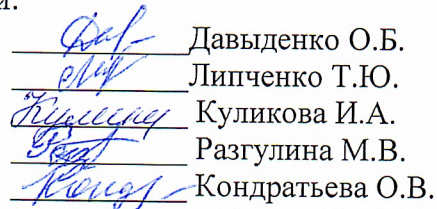 и.
Давыденко О.Б.
Липченко Т.Ю.
Куликова И.А.
Разгулина М.В.
Кондратьева О.В.